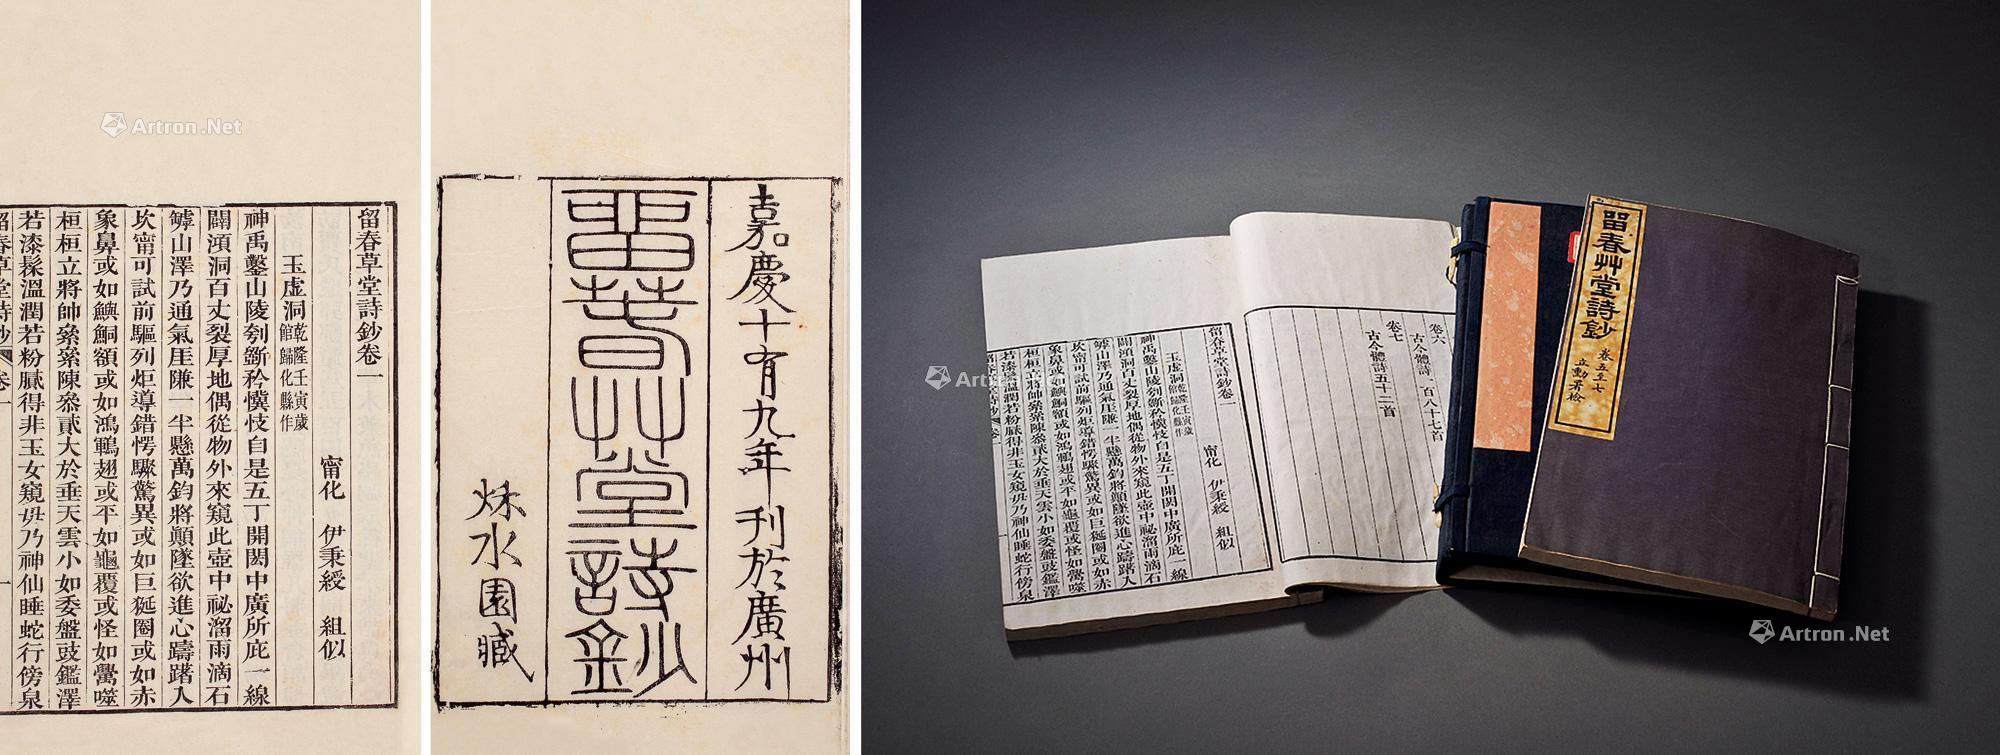 留春草堂詩鈔卷一
甯化　伊秉綬　組似
玉虛洞乾隆壬寅歲館歸化縣作
神禹鑿山陵刳斷矜慎忮自是五丁開閎中廣所庇一線
闢澒洞百丈裂厚地偶從物外來窺此壺中祕溜雨滴石
罅山澤乃通氣厓賺一半懸萬鈞將顛墜欲進心躊躇入
坎甯可試前驅列炬導錯愕驟驚異或如巨鋋圈或如赤
象鼻或如鱮鮦額或如鴻鶤翅或平如龜覆或怪如鱟噬
桓桓立將帥纍纍陳叅貳大於垂天雲小如委盤豉鑑澤
若漆髹溫潤若粉膩得非玉女窺毋乃神仙睡蛇行傍泉
留春草堂詩鈔　卷一　一
嘉慶十有九年刊於廣州
留春艸堂詩鈔
秌水園臧
Artron.Net
卷六
古今體詩一百八十七首
卷七
古今體詩五十二首
留春草堂詩鈔卷一
甯化　伊秉綬　組似
玉虛洞乾隆壬寅歲館歸化縣作
留春艸堂詩鈔
卷五至七
Artron.Net
Artron.Net